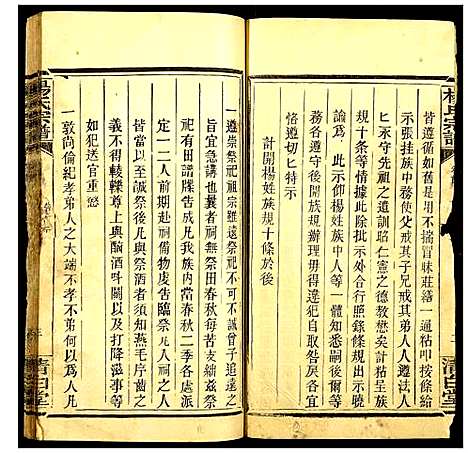 楊氏宗譜
皆遵循如舊是用不揣冒昧莊繕一通粘叩按條給
示張挂族中務使父戒其子兄戒其弟人人遵行
先祖之遺訓
仁憲之德教懋矣計粘族
規十條等情據此除批示外合行照錄條規出示曉
諭為此示仰楊姓族中人等一體知悉嗣後爾等
務各遵守後開族規辦理毋得違犯自取咎戾各宜
恪遵切切特示
計開楊姓族規十條於後
清白堂
楊氏宗譜
一遵崇祭祀祖宗雖遠祭祀不可不誠曾子追遠之
旨宜急講也曩者祀無祭田春秋每苦
祀有田譜牒告成凡我族內當春秋二季各房派
一二人前期赴祠備物虔告臨祭
以至誠祭後凡與祭酒者須知燕毛序齒之
義不得輕轢尊上與酗酒呌鬧以及打降滋事等
如犯送官重懲
一敦尚倫紀孝弟人之大端不孝不弟何以為人凡
清白堂